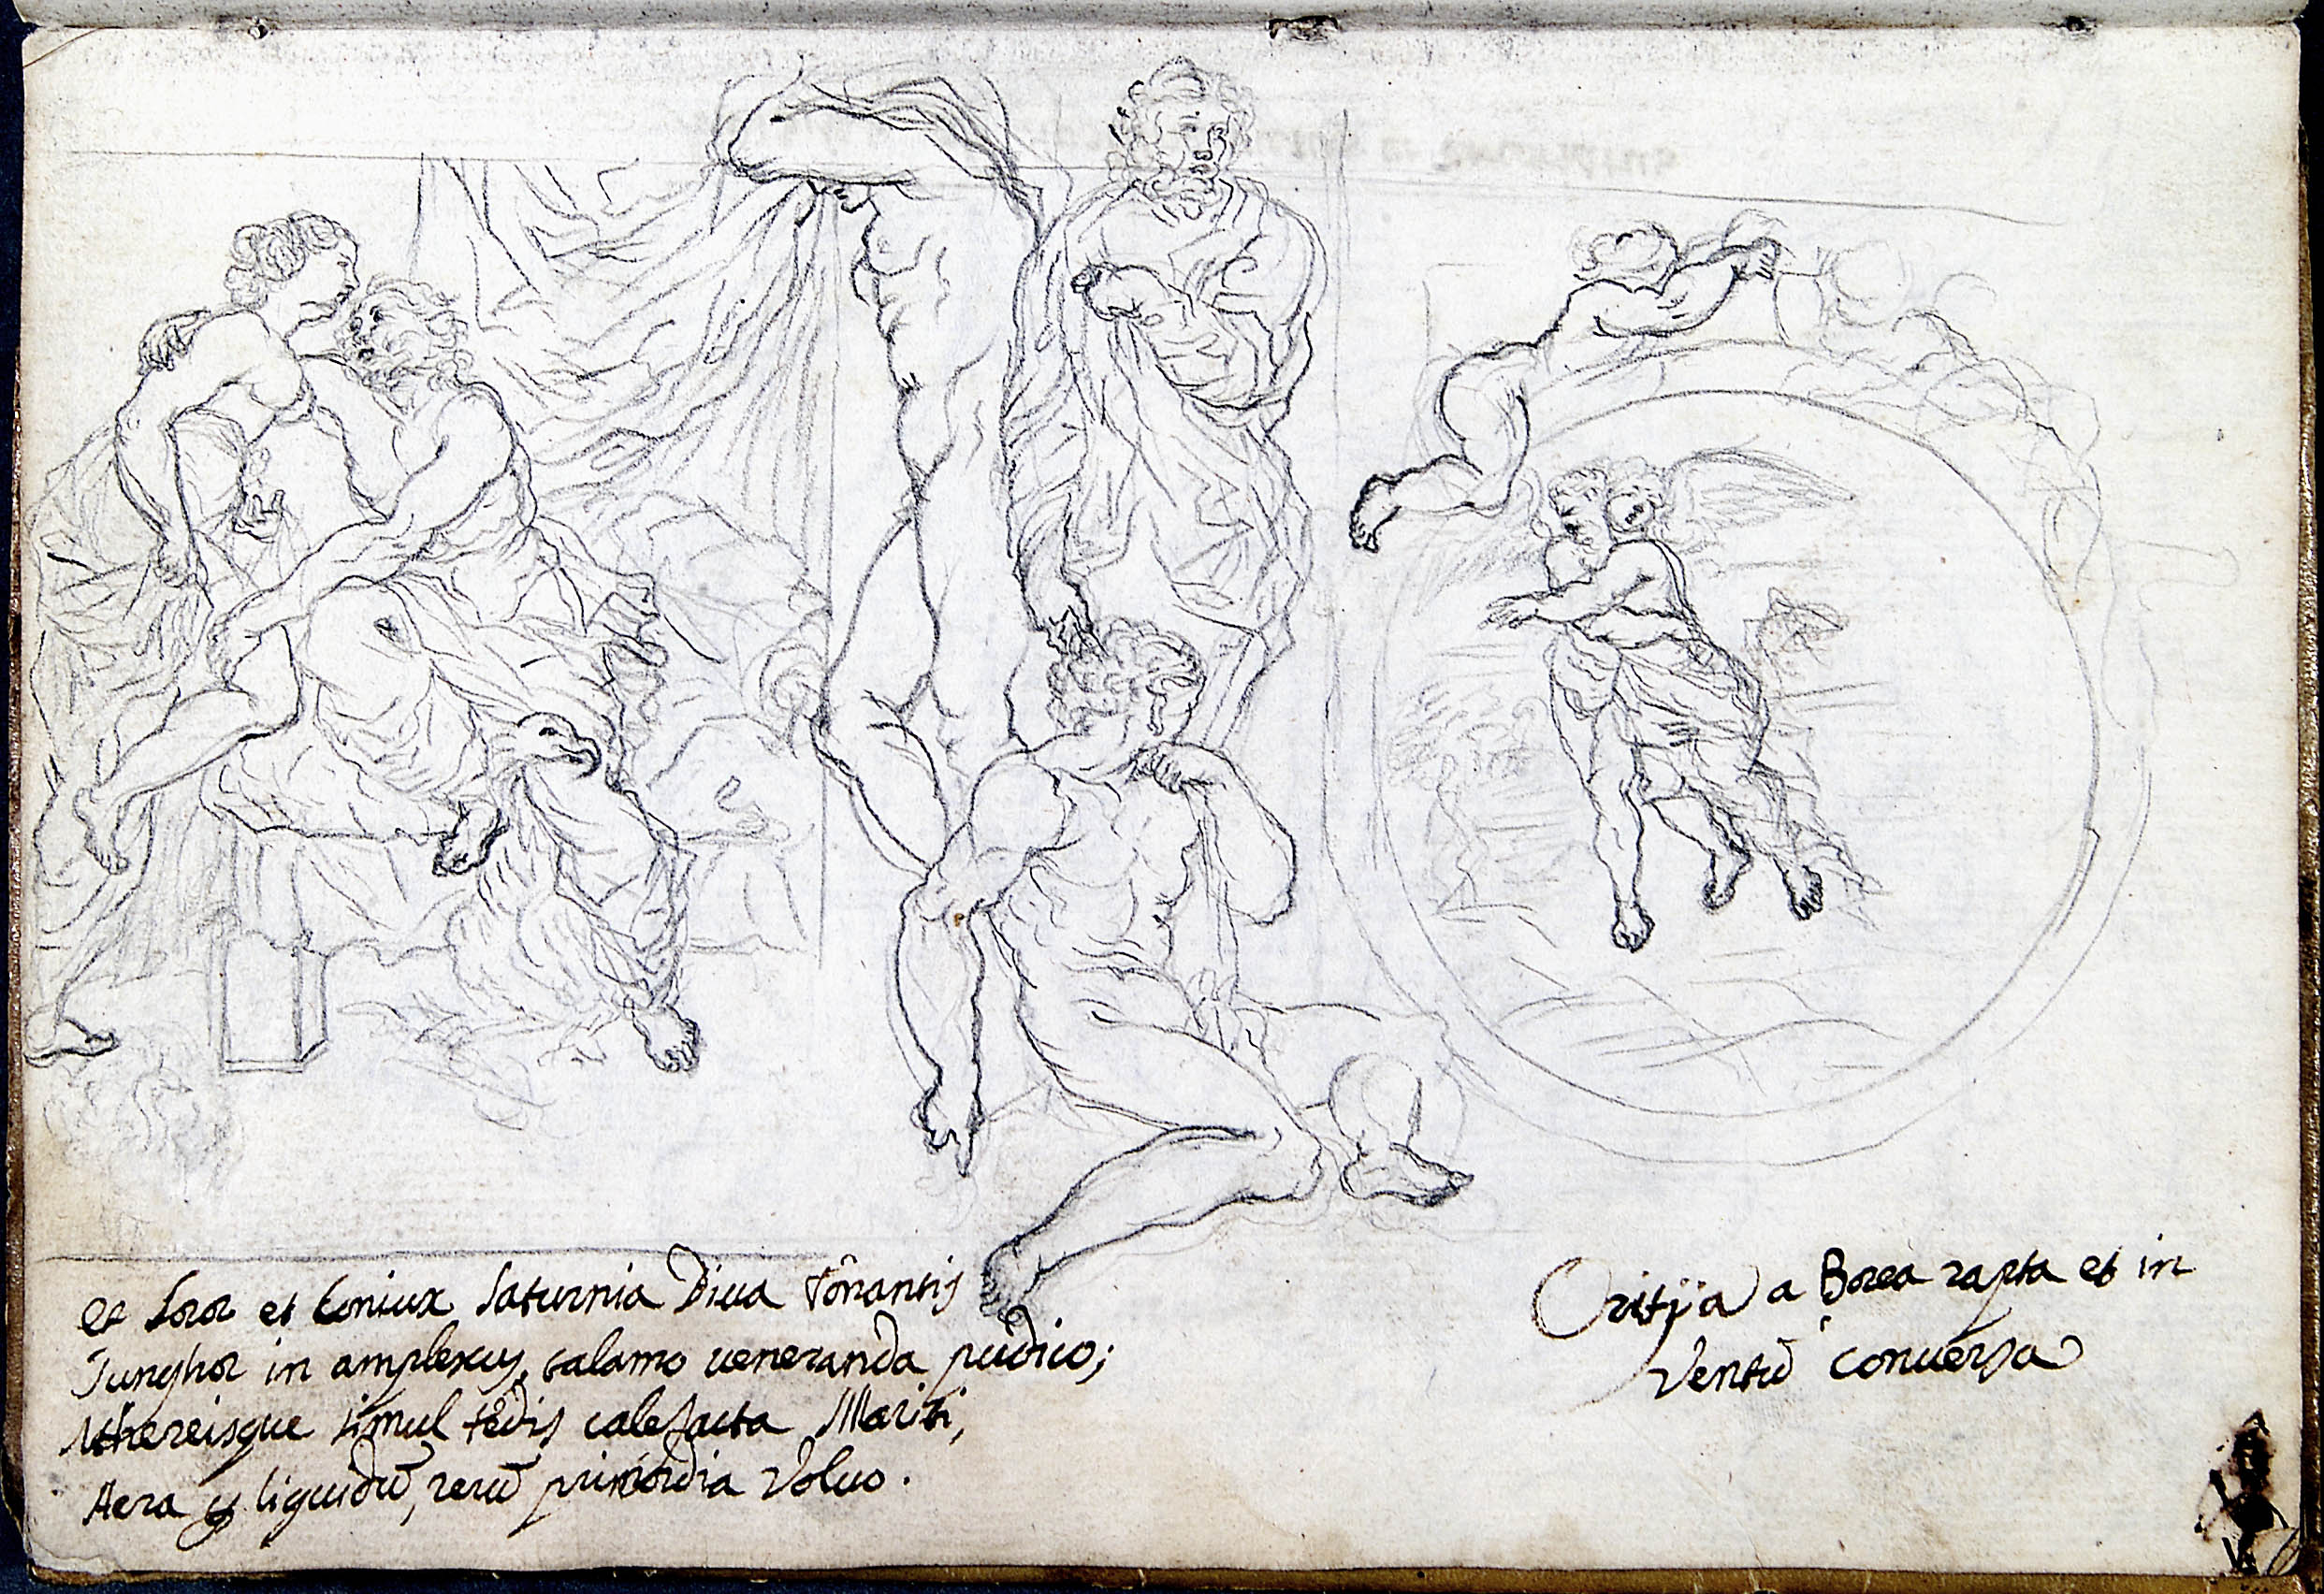 et Soror et Coniux Saturnia Diua Tonantis
Junghor in amplexus, talamo ueneranda pudico;
Æthereisque simul tedis calefacta Mariti,
Aera per liquidū, rerū primordia Voluo.
Oritÿa a Borea rapta et in
Ventū conuersa